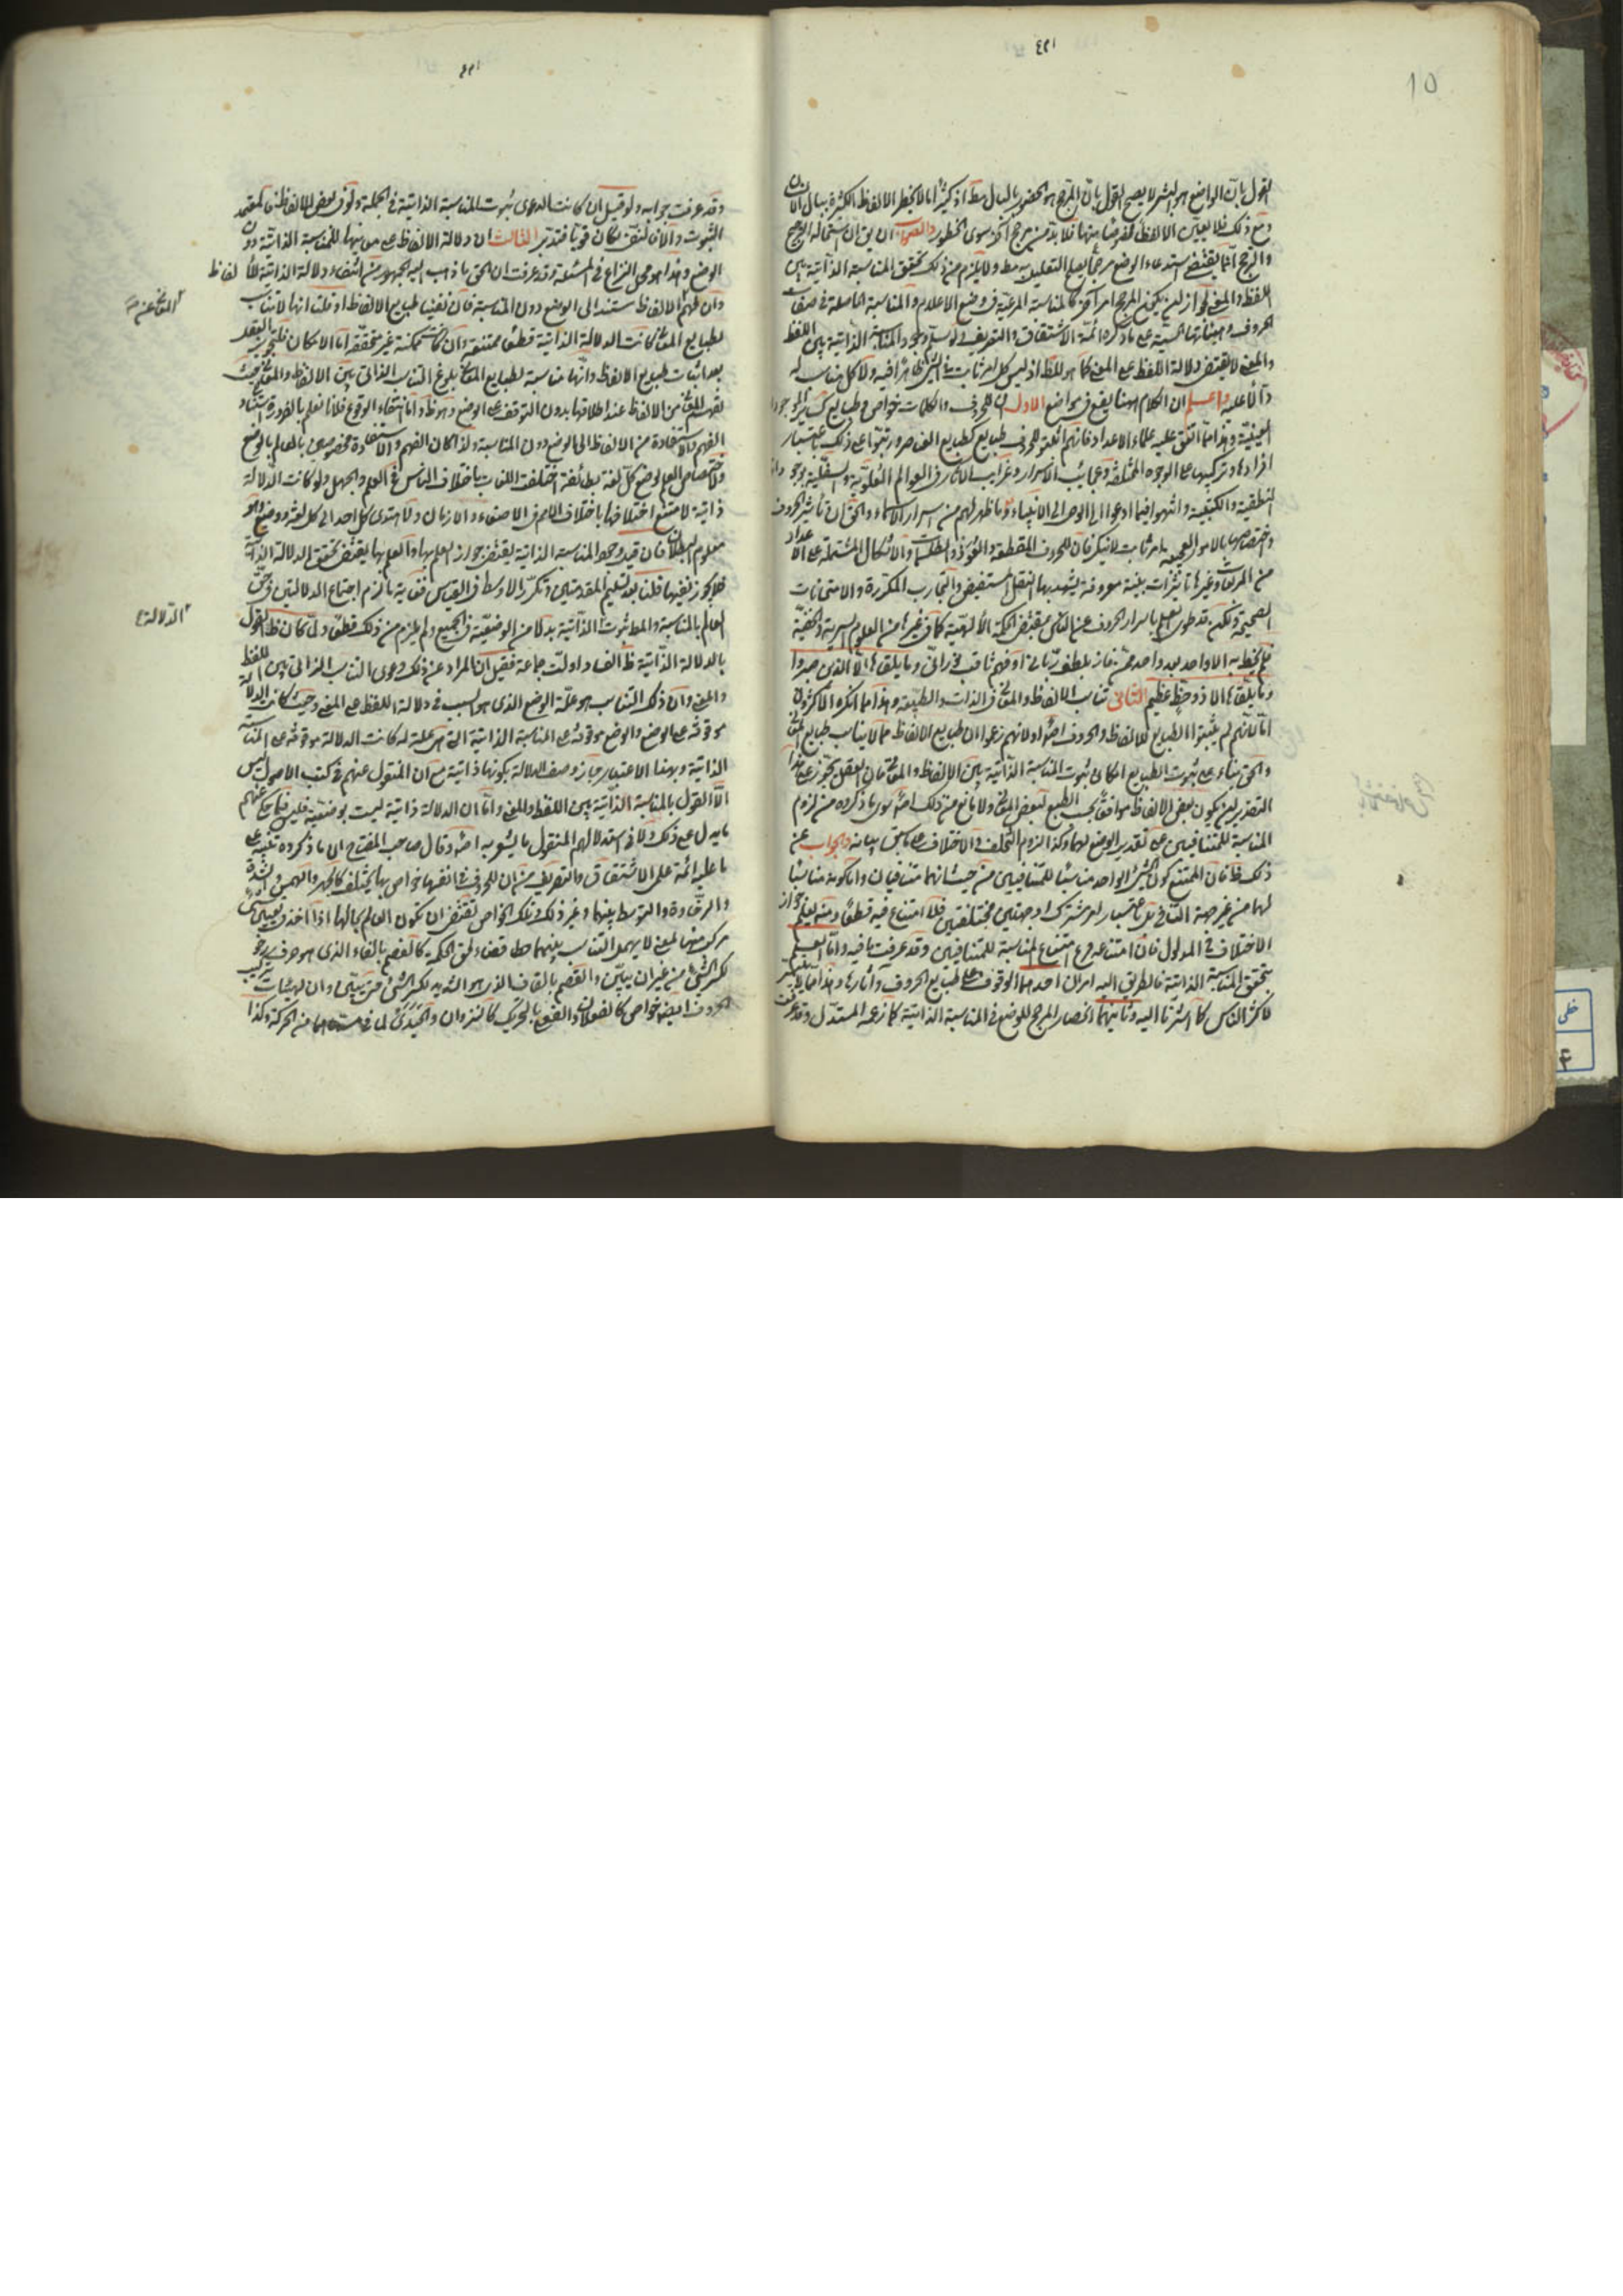 القول بان الواضع هو البشر لا يصح القول بان المرجح هو الحضور بالبال مط اذ كثيرا ما لا يخطر الالفاظ الكثيرة ببال الانسان
ومع ذلك فلا يعين الالفاظ لغرض منها فلا بد من مرجح آخر سوى الخطور والصواب ان يق ان استحالة الترجيح
والترجح انما يقتضى استدعاء الوضع مرجحا يعلم التعليل به مط ولا يلزم من ذلك تحقق المناسبة الذاتية بين
اللفظ والمعنى لجواز ان يكون المرجح امرا آخر كالمناسبة المرعية فى وضع الاعلام والمناسبة الحاصلة فى صفات
الحروف وهيئاتها الحسية على ما ذكره ائمة الاشتقاق والتصريف ولو سلم وجود المناسبة الذاتية بين اللفظ
والمعنى لا يقتضى دلالة اللفظ على المعنى كما هو المط اذ ليس كل امر ثابت فى الشئ ظاهرا فيه ولا كل مناسب له
دالا عليه واعلم ان الكلام ههنا يقع فى مواضع الاول ان للحروف والكلمات خواص وطبايع كسائر الموجودات
العينية وهذا مما اتفق عليه علماء الاعداد فانهم اثبتوا للحروف طبايع كطبايع العناصر ورتبوا على ذلك باعتبار
افرادها وتركيبها على الوجوه المختلفة وعجايب الاسرار وغرايب الآثار فى العوالم العلوية والسفلية بوجود
النطقية والكتبية وانتهوا فيما ادعوا الى الوحى الى الانبياء وما ظهر لهم من اسرار الاسماء والحق ان تأثير الحروف
واختصاصها بالامور العجيبة امر ثابت لا ينكر فان للحروف المقطعة والعوذ والطلسمات والاشكال المشتملة على الاعداد
من المربعات وغيرها تأثيرات بينة معروفة يشهد بها النقل المستفيض والتجارب المتكررة والامتحانات
الصحيحة ولكن قد طوى العلم باسرار الحروف عن الناس بمقتضى الحكمة الالهية كما فى غيرها من العلوم السرية والخفية
فلم يحظ به الا واحد بعد واحد ممن فاز بلطف ربانى او فهم ثاقب نورانى وما يلقيها الا الذين صبروا
وما يلقيها الا ذو حظ عظيم الثانى تناسب الالفاظ والمعانى فى الذات والطبيعة وهذا مما انكره الاكثرون
اما لانهم لم يثبتوا الطبايع للالفاظ والحروف اصلا او لانهم زعموا ان طبايع الالفاظ مما لا يناسب طبايع المعانى
والحق بناء على ثبوت الطبايع امكان ثبوت المناسبة الذاتية بين الالفاظ والمعانى فان العقل يجوز على هذا
التقدير ان يكون بعض الالفاظ موافقا بحسب الطبع لبعض المعانى ولا مانع من ذلك اصلا سوى ما ذكروه من لزوم
المناسبة للمتنافيين على تقدير الوضع لهما وكذا لزوم التخلف والاختلاف على ما سبق بيانه والجواب عن
ذلك ظ فان الممتنع كون الشئ الواحد مناسبا للمتنافيين من حيث انهما متنافيان واما كونه مناسبا
لهما من غير جهة التنافى بل باعتبار امر مشترك او جهتين مختلفتين فلا امتناع فيه قطعا ومنه يعلم جواز
الاختلاف فى المدلول فان امتناعه فرع امتناع المناسبة للمتنافيين وقد عرفت ما فيه واما العلم
بتحقق المناسبة الذاتية فالطريق اليه امران احدهما الوقوف على طبايع الحروف وآثارها وهذا مما لا يتيسر
لاكثر الناس كما اشرنا اليه وثانيهما انحصار المرجح للوضع فى المناسبة الذاتية كما زعمه المستدل وقد عرفت
وقد عرفت جوابه ولو قيل ان كانت الدعوى ثبوت المناسبة الذاتية فى الجملة ولو فى بعض الالفاظ
الثبوت والا فالنفى لكان قويا فتدبر الثالث ان دلالة الالفاظ على معانيها للمناسبة الذاتية دون
الوضع وهذا هو محل النزاع فى المسئلة وقد عرفت ان الحق ما ذهب اليه الجمهور من انتفاء دلالة الذاتية للالفاظ
وان فهم الالفاظ مستند الى الوضع دون المناسبة فان نفينا طبايع الالفاظ او قلنا انها لا تناسب
لطبايع المعانى كانت الدلالة الذاتية قطعا ممتنعة وان كانت ممكنة غير متحققة اما الامكان فلتجويز العقل
بعد اثبات طبايع الالفاظ وانها مناسبة لطبايع المعانى بلوغ التناسب الذاتى بين الالفاظ والمعانى بحيث
تفهم المعانى من الالفاظ عند اطلاقها بدون التوقف على الوضع وهو ظ واما انتفاء الوقوع فلانا نعلم بالضرورة استناد
الفهم والاستفادة من الالفاظ الى الوضع دون المناسبة ولذا كان الفهم والاستفادة مخصوصين بالعالم بالوضع
ولاختصاص العلم بوضع كل لغة بطائفة اختلفت اللغات باختلاف الناس فى العلم والجهل ولو كانت الدلالة
ذاتية لامتنع اختلافها باختلاف الامم فى الاصقاع والازمان ولاهتدى كل احد الى كل لغة ووضع وهو
معلوم البطلان فان قيل وجود المناسبة الذاتية يقتضى جواز العلم بها والعلم بها يقتضى تحقق الدلالة الذاتية
فلا يجوز نفيها قلنا بعد تسليم المقدمتين وتكرر الاوسط فى القياس فغاية ما لزم اجتماع الدلالتين فى حق
العالم بالمناسبة والمط ثبوت الذاتية بدلا من الوضعية فى الجميع ولم يلزم من ذلك قطعا ولما كان ظ القول
بالدلالة الذاتية ظ الفساد اولت جماعة فقيل ان المراد عن ذلك دعوى التناسب الذاتى بين اللفظ
والمعنى وان ذلك التناسب هو علة الوضع الذى هو السبب فى دلالة اللفظ على المعنى وحيث كانت الدلالة
موقوفة على الوضع والوضع موقوفا على المناسبة الذاتية التى هى علة له كانت الدلالة موقوفة على المناسبة
الذاتية وبهذا الاعتبار جاز وصف الدلالة بكونها ذاتية مع ان المنقول عنهم فى كتب الاصول ليس
الا القول بالمناسبة الذاتية بين اللفظ والمعنى واما ان الدلالة ذاتية ليست بوضعية فليس فيما حكى عنهم
ما يدل على ذلك ولا فى استدلالهم المنقول ما يشعر به اصلا وقال صاحب المفتاح ان ما ذكروه تنبيه على
ما عليه ائمة علمى الاشتقاق والتصريف من ان للحروف فى انفسها خواص بها يختلف كالجهر والهمس والشدة
والرخاوة والتوسط بينهما وغير ذلك وتلك الخواص تقتضى ان يكون العالم بحالها اذا اخذ فى تعيين شئ
مركب منها لمعنى لا يهمل التناسب بينهما قضاء لحق الحكمة كالفصم بالفاء الذى هو حرف رخو
لكسر الشئ من غير ان يبين والقصم بالقاف الذى هو شديد لكسر الشئ حتى يبين وان لهيئات تركيب
الحروف ايضا خواص كالفعلان والفعلى بالتحريك كالنزوان والحيدى لما فى مسماهما من الحركة وكذا
الدلالة
10
خطى